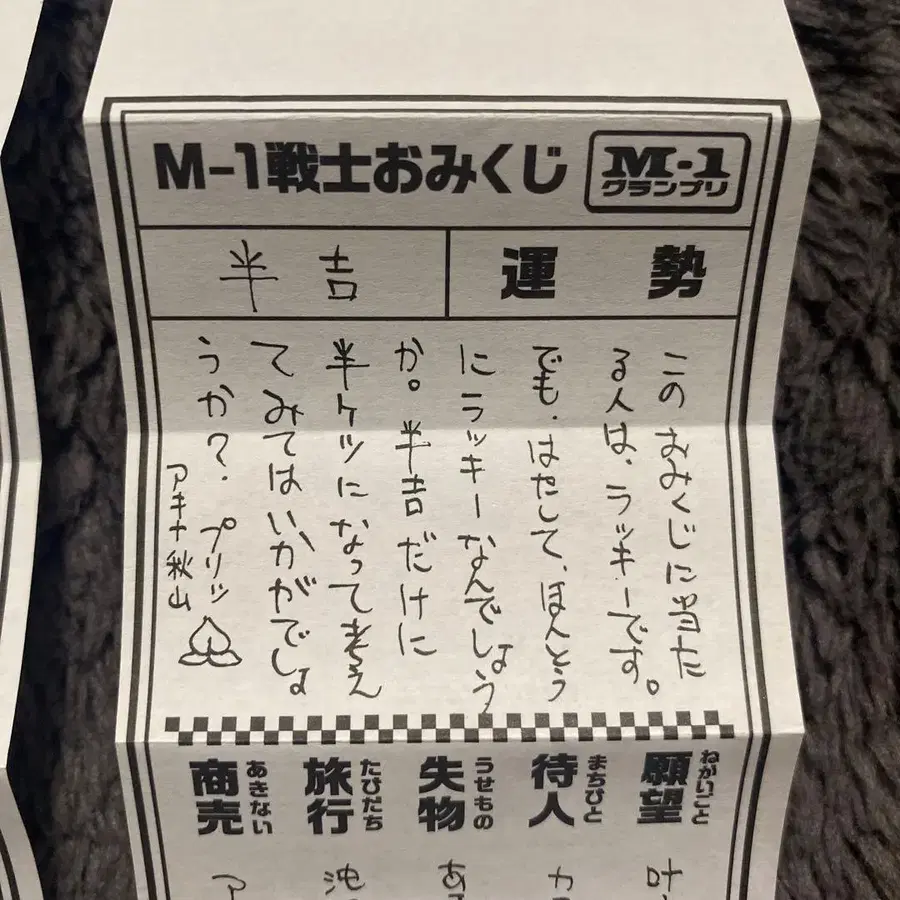 M-1戦士おみくじ
M-1
グランプリ
運勢
半吉
このおみくじに当た
る人は、ラッキーです。
でも、はたして、ほんとう
にラッキーなんでしょう
か。半吉だけに
半ケツになって考え
てみてはいかがでしょ
うか？プリッ
アキナ秋山
願望
ねがいごと
叶
待人
まちびと
カ
失物
うせもの
あ
旅行
たびだち
商売
あきない
ア